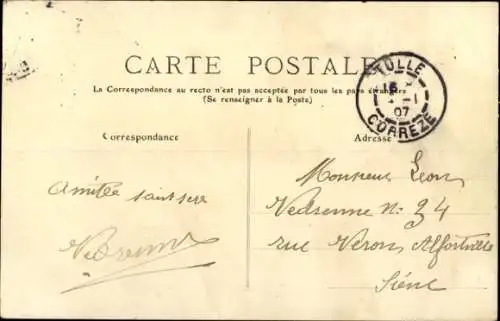 CARTE POSTALE
La Correspondance au recto n'est pas acceptée par tous les pays étrangers
(Se renseigner à la Poste)
TULLE
07
CORREZE
Correspondance
Adresse
Monsieur Leon
Vedrenne N: 34
rue Veron Alfortville
Siéne
Amitée
Vedrenne